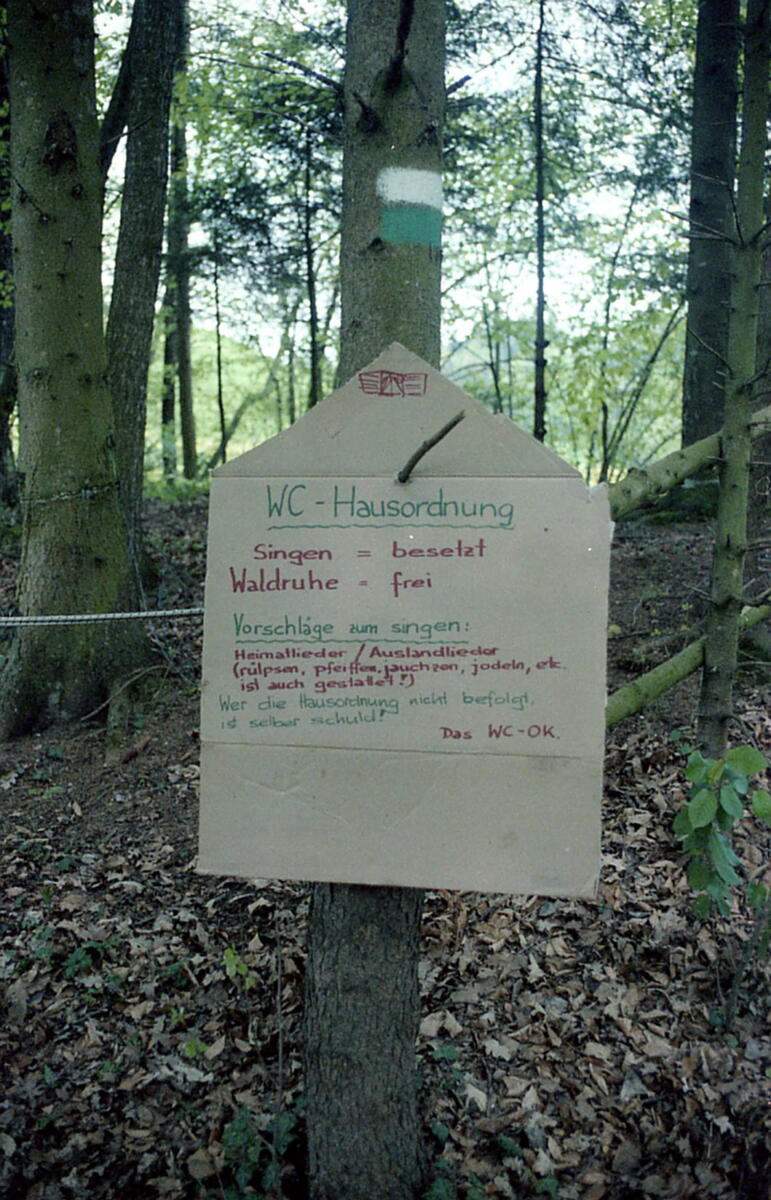 WC - Hausordnung
Singen = besetzt
Waldruhe = frei
Vorschläge zum singen:
Heimatlieder / Auslandlieder
(rülpsen, pfeiffen, jauchzen, jodeln, etc.
ist auch gestattet!)
Wer die Hausordnung nicht befolgt,
ist selber schuld!
Das WC-OK.